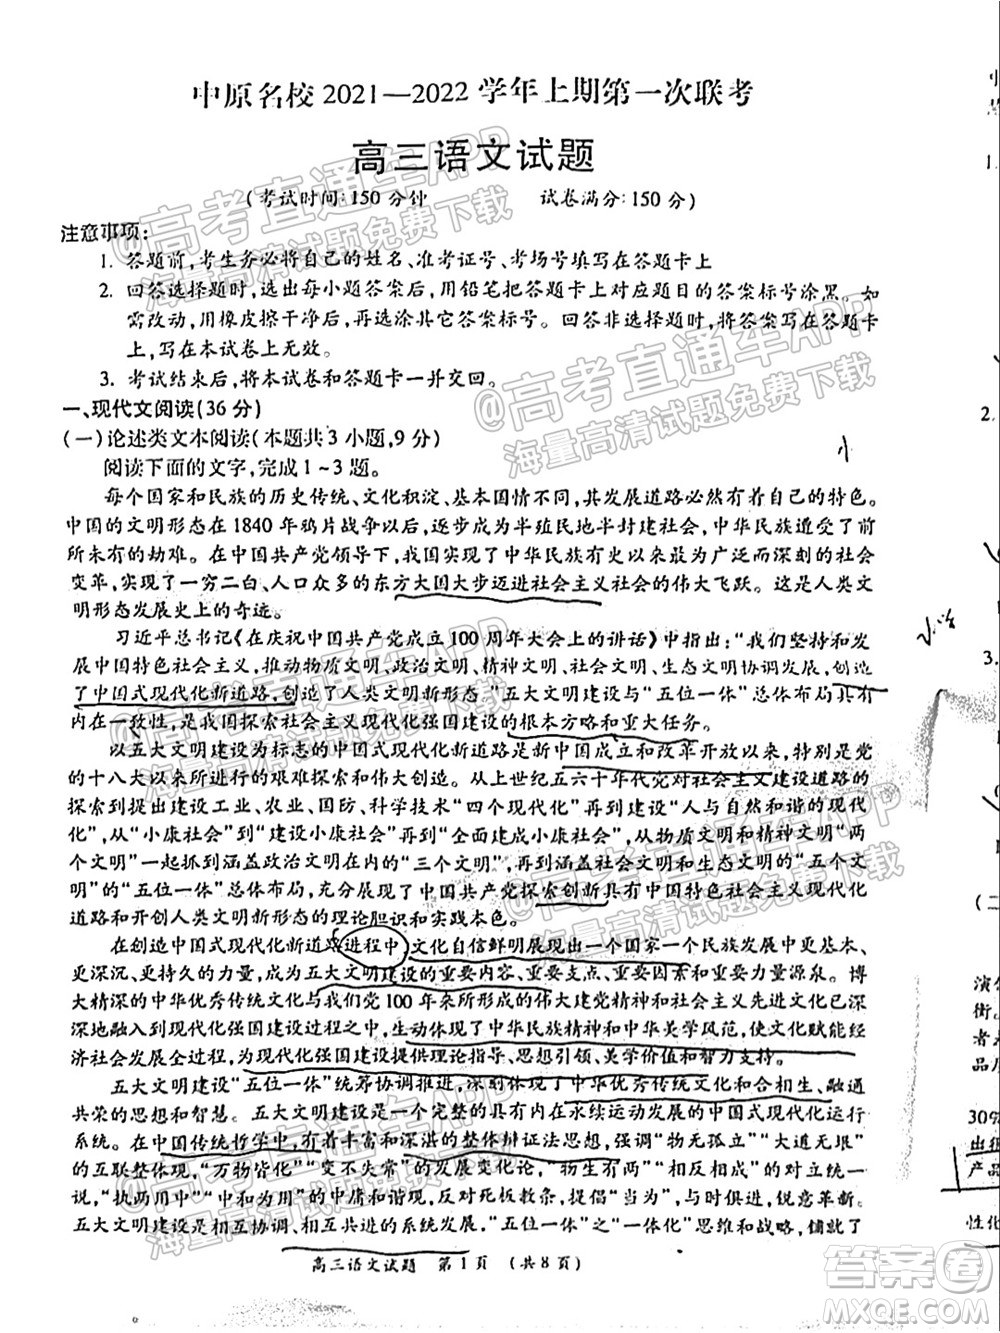 中原名校2021—2022学年上期第一次联考
高三语文试题
(考试时间:150分钟 试卷满分:150分)
注意事项:
1. 答题前,考生务必将自己的姓名、准考证号、考场号填写在答题卡上
2. 回答选择题时,选出每小题答案后,用铅笔把答题卡上对应题目的答案标号涂黑。如
需改动,用橡皮擦干净后,再选涂其它答案标号。回答非选择题时,将答案写在答题卡
上,写在本试卷上无效。
3. 考试结束后,将本试卷和答题卡一并交回。
一、现代文阅读(36分)
(一)论述类文本阅读(本题共3小题,9分)
阅读下面的文字,完成1~3题。
每个国家和民族的历史传统、文化积淀、基本国情不同,其发展道路必然有着自己的特色。
中国的文明形态在1840年鸦片战争以后,逐步成为半殖民地半封建社会,中华民族遭受了前
所未有的劫难。在中国共产党领导下,我国实现了中华民族有史以来最为广泛而深刻的社会
变革,实现了一穷二白、人口众多的东方大国大步迈进社会主义社会的伟大飞跃。这是人类文
明形态发展史上的奇迹。
习近平总书记《在庆祝中国共产党成立100周年大会上的讲话》中指出:“我们坚持和发
展中国特色社会主义,推动物质文明、政治文明、精神文明、社会文明、生态文明协调发展,创造
了中国式现代化新道路,创造了人类文明新形态。”五大文明建设与“五位一体”总体布局具有
内在一致性,是我国探索社会主义现代化强国建设的根本方略和重大任务。
以五大文明建设为标志的中国式现代化新道路是新中国成立和改革开放以来,特别是党
的十八大以来所进行的艰难探索和伟大创造。从上世纪五六十年代党对社会主义建设道路的
探索到提出建设工业、农业、国防、科学技术“四个现代化”再到建设“人与自然和谐的现代
化”,从“小康社会”到“建设小康社会”再到“全面建成小康社会”,从物质文明和精神文明“两
个文明”一起抓到涵盖政治文明在内的“三个文明”,再到涵盖社会文明和生态文明的“五个文
明”的“五位一体”总体布局,充分展现了中国共产党探索创新具有中国特色社会主义现代化
道路和开创人类文明新形态的理论胆识和实践本色。
在创造中国式现代化新道路进程中,文化自信鲜明展现出一个国家一个民族发展中更基本、
更深沉、更持久的力量,成为五大文明建设的重要内容、重要支点、重要因素和重要力量源泉。博
大精深的中华优秀传统文化与我们党100年来所形成的伟大建党精神和社会主义先进文化已深
深地融入到现代化强国建设过程之中,生动体现了中华民族精神和中华美学风范,使文化赋能经
济社会发展全过程,为现代化强国建设提供理论指导、思想引领、美学价值和智力支持。
五大文明建设“五位一体”统筹协调推进,深刻体现了中华优秀传统文化和合相生、融通
共荣的思想和智慧。五大文明建设是一个完整的具有内在永续运动发展的中国式现代化运行
系统。在中国传统哲学中,有着丰富和深湛的整体辩证法思想,强调“物无孤立”“大道无垠”
的互联整体观,“万物皆化”“变不失常”的发展变化论,“物生有两”“相反相成”的对立统一
说,“执两用中”“中和为用”的中庸和谐观,反对死板教条,提倡“当为”,与时俱进,锐意革新。
五大文明建设是相互协调、相互共进的系统发展,“五位一体”之“一体化”思维和战略,铺就了
高三语文试题 第1页 (共8页)
1.
2.
3.
(二
演
衡
者
品
30%
出
产品
性化
@高考直通车APP
海量高清试题免费下载
@高考直通车APP
海量高清试题免费下载
@高考直通车APP
海量高清试题免费下载
@高考直通车APP
海量高清试题免费下载
答案圈
MXQE.COM